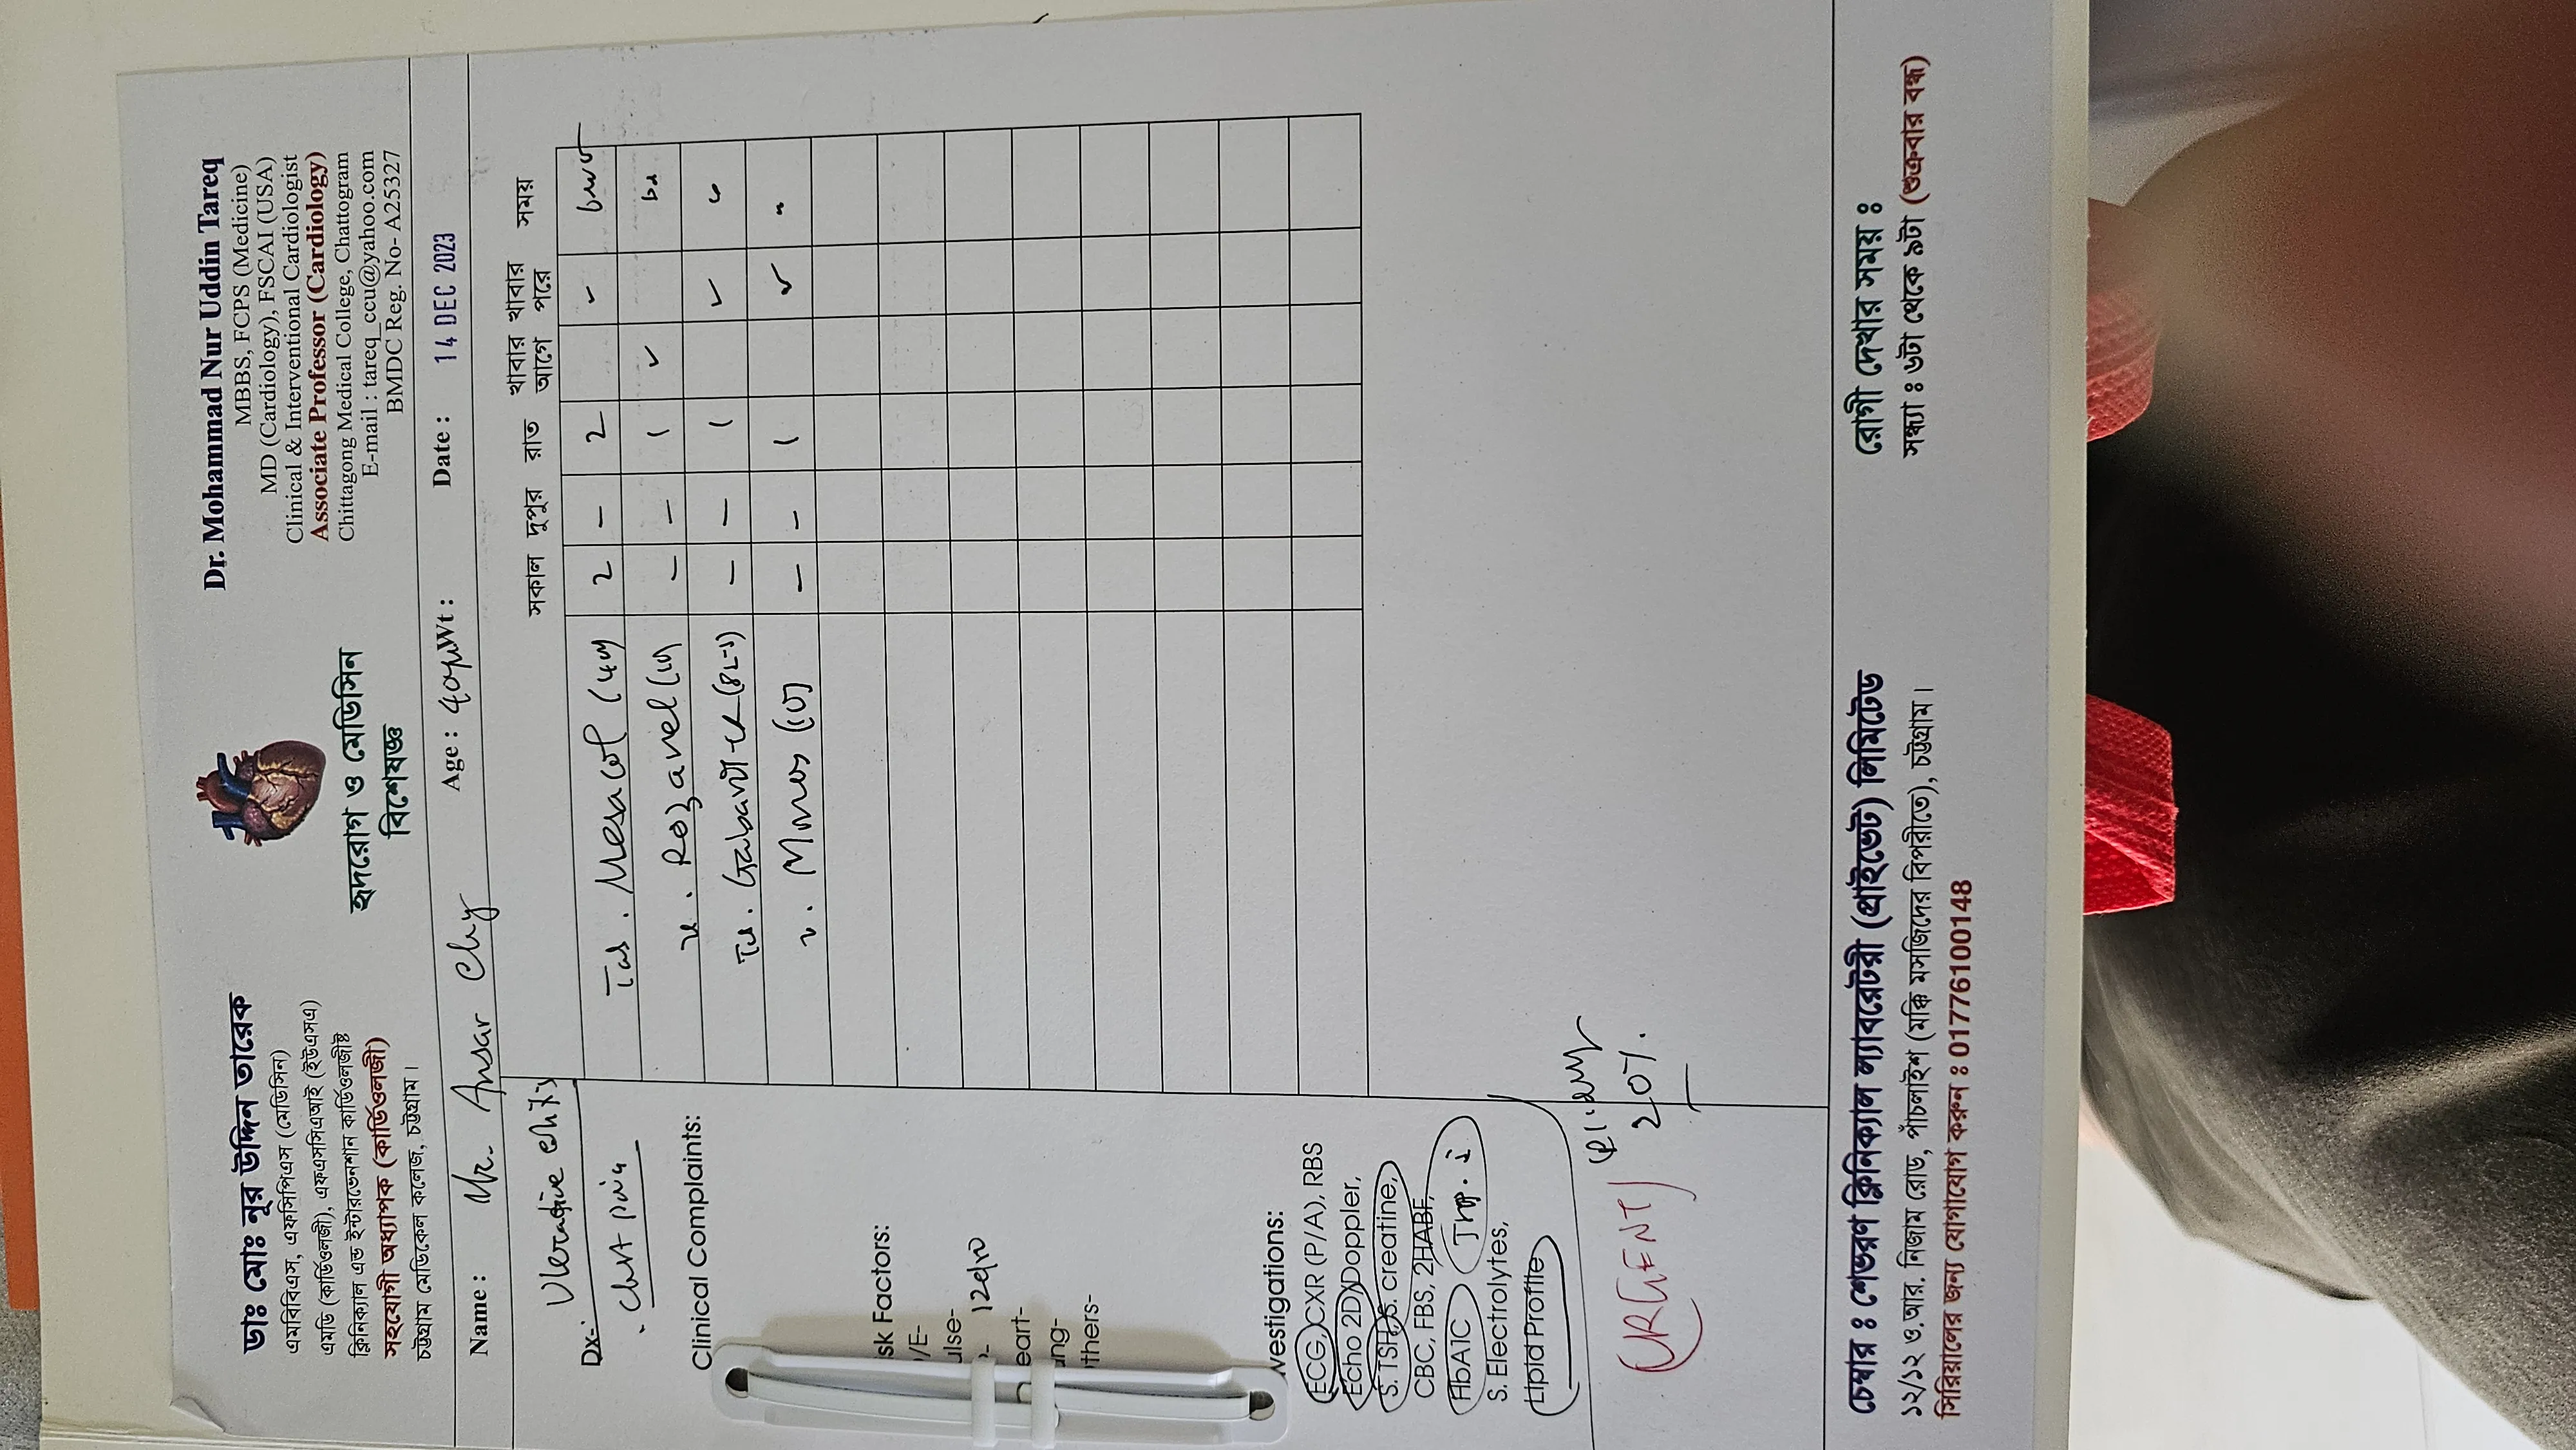 ডাঃ মোঃ নূর উদ্দিন তারেক
এমবিবিএস, এফসিপিএস (মেডিসিন)
এমডি (কার্ডিওলজী), এফএসসিএআই (ইউএসএ)
ক্লিনিক্যাল এন্ড ইন্টারভেনশান কার্ডিওলজীষ্ট
সহযোগী অধ্যাপক (কার্ডিওলজী)
চট্টগ্রাম মেডিকেল কলেজ, চট্টগ্রাম।
হৃদরোগ ও মেডিসিন
বিশেষজ্ঞ
Dr. Mohammad Nur Uddin Tareq
MBBS, FCPS (Medicine)
MD (Cardiology), FSCAI (USA)
Clinical & Interventional Cardiologist
Associate Professor (Cardiology)
Chittagong Medical College, Chattogram
E-mail : tareq_ccu@yahoo.com
BMDC Reg. No- A25327
Name : Mr. Ansar Chy Age : Wt : Date : 14 DEC 2023
Dx-: Ulcerative
Chest pain
Clinical Complaints:
sk Factors:
/E-
ulse-
eart-
ung-
thers-
vestigations:
ECG, CXR (P/A), RBS
Echo 2D/Doppler,
S. TSH, S. creatine,
CBC, FBS, 2HABF,
HbA1C
S. Electrolytes,
Lipid Profile
URGENT
20%
সকাল দুপুর রাত খাবার আগে খাবার পরে সময়
Tab. Mesacol 2 - 2
Rozavel - - 1
Tab. - - 1
Monas - - 1
চেম্বার : শেভরণ ক্লিনিক্যাল ল্যাবরেটরী (প্রাইভেট) লিমিটেড
১২/১২ ও.আর. নিজাম রোড, পাঁচলাইশ (মক্কি মসজিদের বিপরীতে), চট্টগ্রাম।
সিরিয়ালের জন্য যোগাযোগ করুন : 01776100148
রোগী দেখার সময় :
সন্ধ্যা : ৬টা থেকে ৯টা (শুক্রবার বন্ধ)